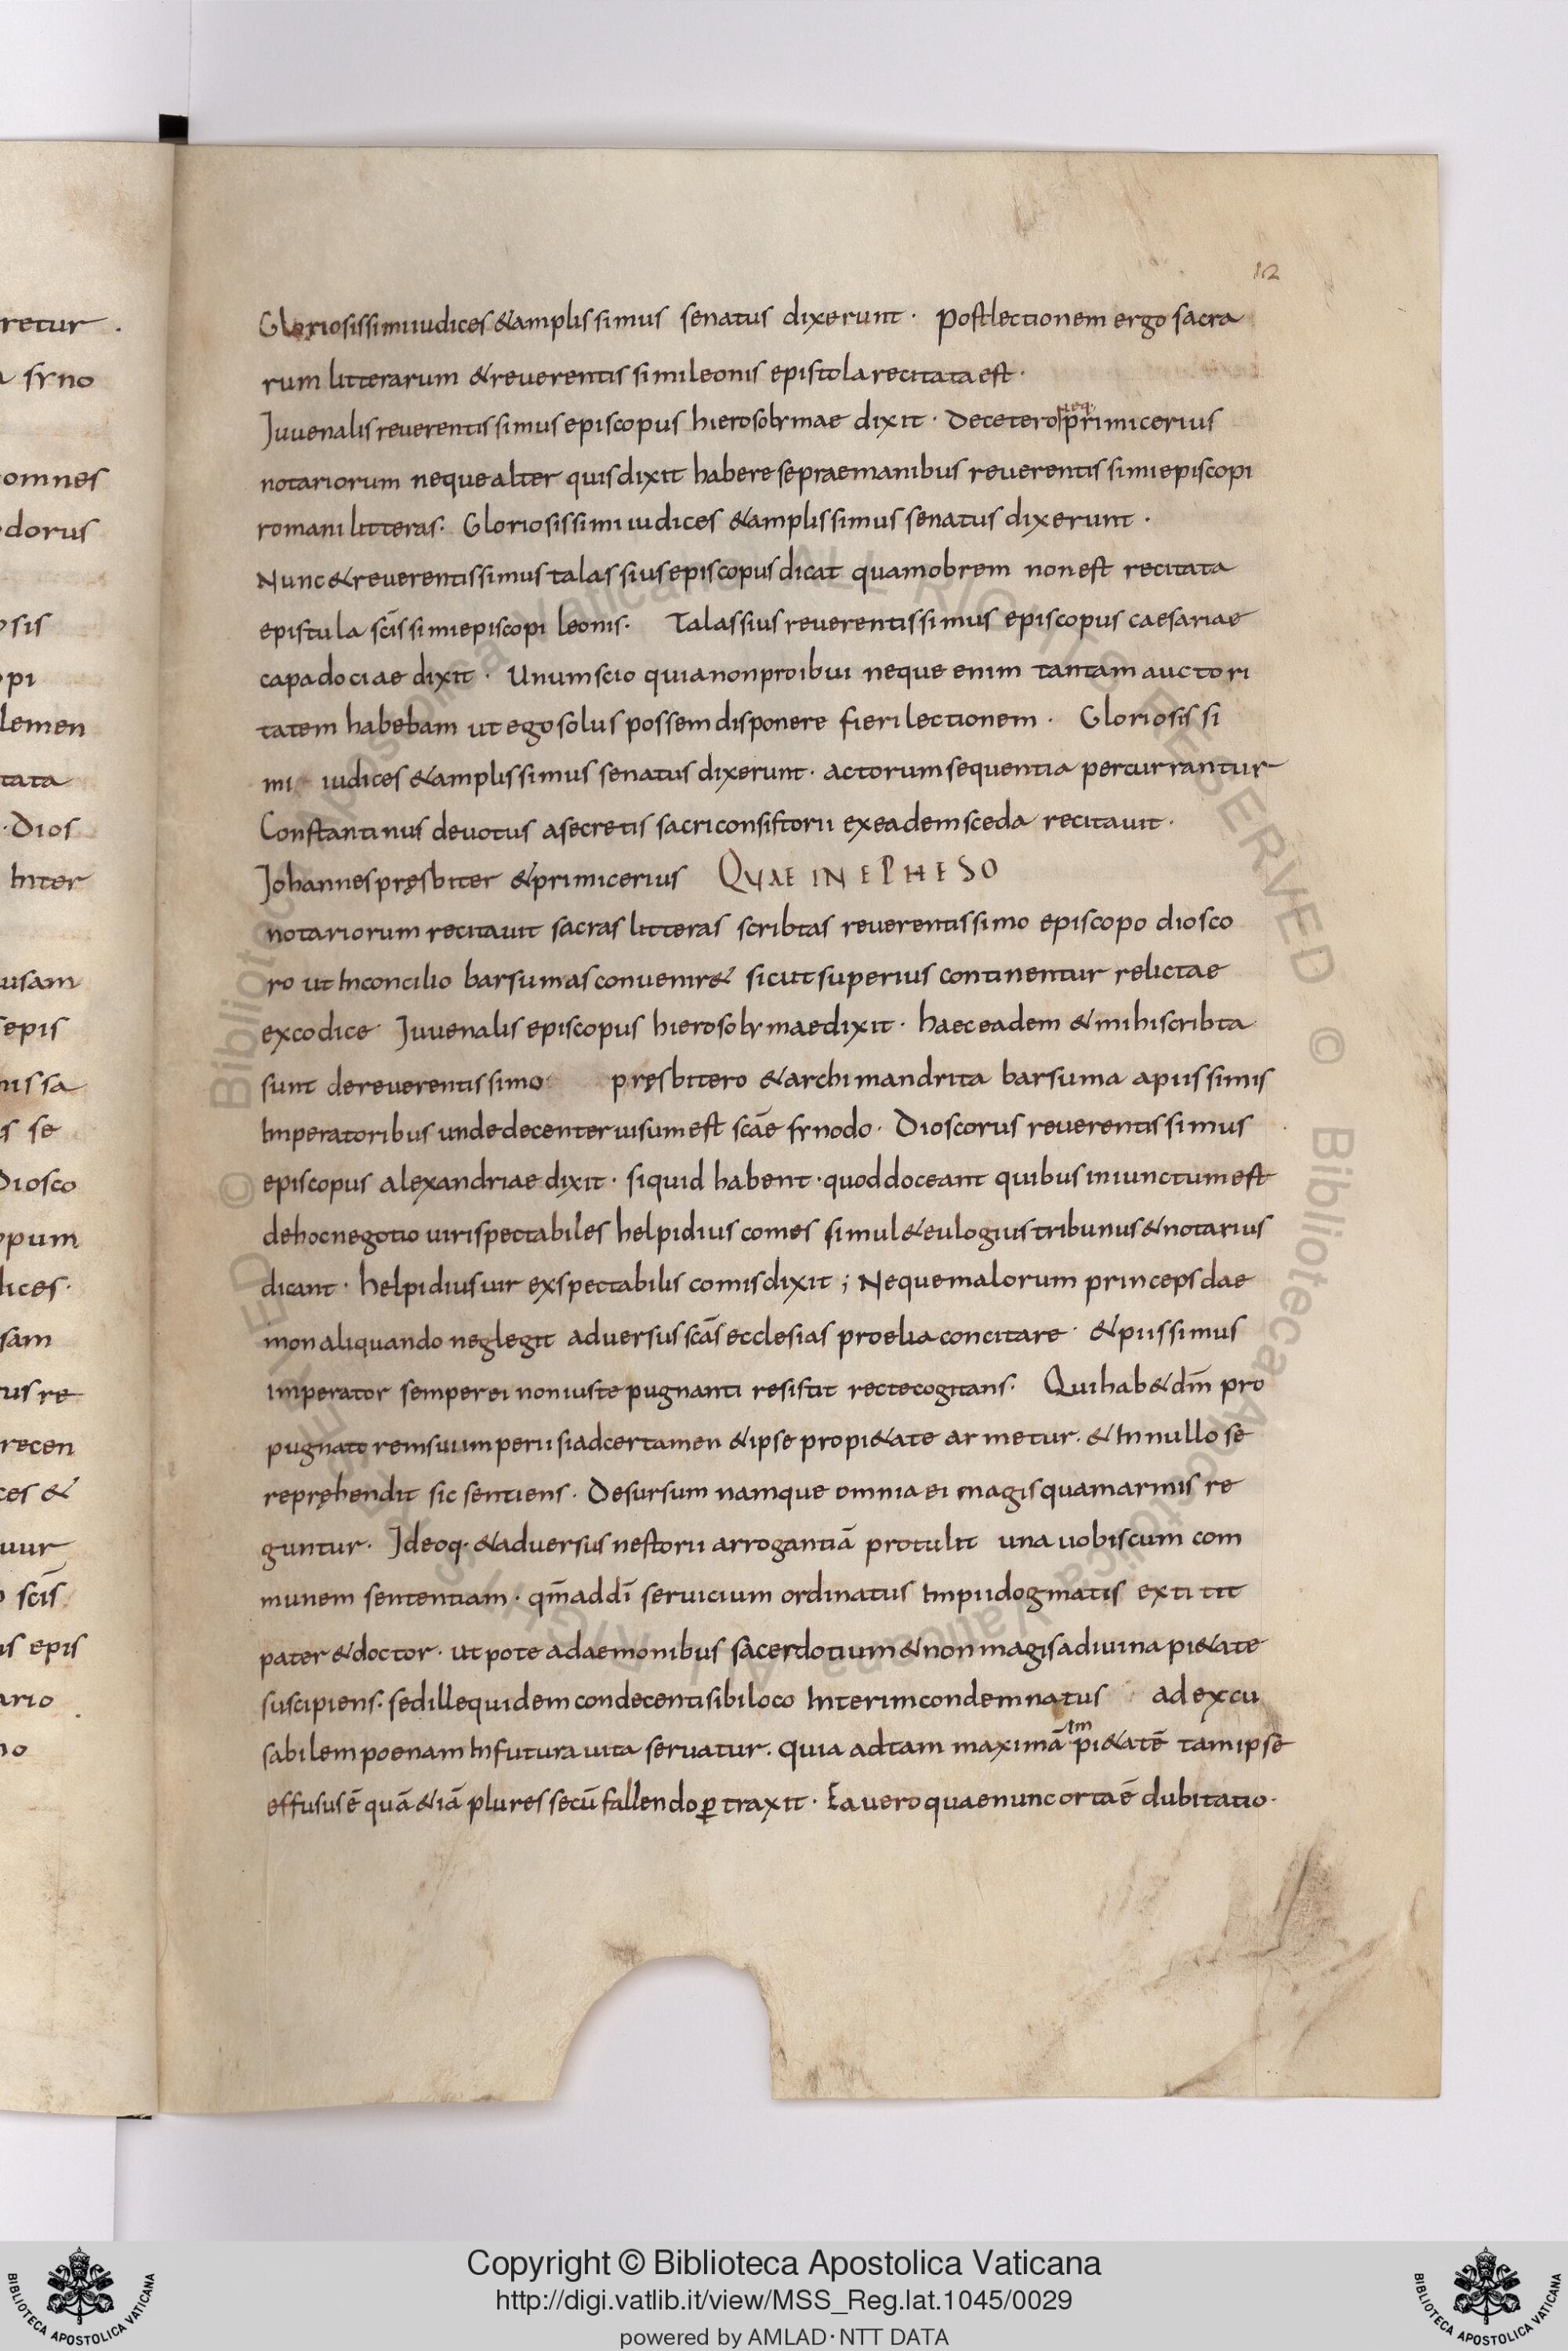 retur .
frno
omnes
dorus
osis
pi
lemen
tata
· Dios
Inter
usam
epis
missa
se
Diosco
opum
lices ·
sam
tus re
recen
ces &
uur
scīs
is epis
ario
no
12
Gloriosissimi iudices & amplissimus senatus dixerunt · Post lectionem ergo sacra
rum litterarum & reuerentissimi leonis epistola recitata est ·
neq·
Juuenalis reuerentissimus episcopus hierosolymae dixit · De cetero primicerius
notariorum neque alter quis dixit habere se prae manibus reuerentissimi episcopi
romani litteras · Gloriosissimi iudices & amplissimus senatus dixerunt ·
Nunc & reuerentissimus talassius episcopus dicat quam obrem non est recitata
epistula scīssimi episcopi leonis · Talassius reuerentissimus episcopus caesariae
capadociae dixit · Unum scio quia non proibui neque enim tantam auctori
tatem habebam ut ego solus possem disponere fieri lectionem · Gloriosissi
mi iudices & amplissimus senatus dixerunt · actorum sequentia percurrantur
Constantinus deuotus asecretis sacri consistorii ex eadem sceda recitauit ·
Johannes pręsbiter & primicerius QUAE IN EPHESO
notariorum recitauit sacras litteras scribtas reuerentissimo episcopo diosco
ro ut In concilio barsumas conuenir& sicut superius continentur relictae
ex codice Juuenalis episcopus hierosolymae dixit · haec eadem & mihi scribta
sunt de reuerentissimo pręsbitero & archimandrita barsuma a piissimis
Imperatoribus unde decenter uisum est scāe synodo · Dioscorus reuerentissimus
episcopus alexandriae dixit · si quid habent · quod doceant quibus iniunctum est
de hoc negotio uiri spectabiles helpidius comes simul & eulogius tribunus & notarius
dicant · helpidius uir exspectabilis comis dixit ; Neque malorum princeps dae
mon aliquando neglegit aduersus scās ecclesias proelia concitare · & piissimus
imperator semper ei non iuste pugnanti resistit recte cogitans · Qui hab& dm̄ pro
pugnatorem sui imperii si ad certamen & ipse propi&ate armetur · & In nullo se
repręhendit sic sentiens · Desursum namque omnia ei magis quam armis re
guntur · Ideoq· & aduersus nestorii arrogantiā protulit una uobiscum com
munem sententiam · qm̄ ad dī seruicium ordinatus Impii dogmatis extitit
pater & doctor · ut pote a daemonibus sacerdotium & non magis a diuina pi&ate
suscipiens · sed ille quidem condecenti sibi loco Interim condemnatus ad excu
tm
sabilem poenam In futura uita seruatur · quia ad tam maximā pi&atē tam ipse
effusus ē quā &iā plures secū fallendo ꝑtraxit · Ea uero quae nunc orta ē dubitatio ·
Copyright © Biblioteca Apostolica Vaticana
http://digi.vatlib.it/view/MSS_Reg.lat.1045/0029
powered by AMLAD·NTT DATA